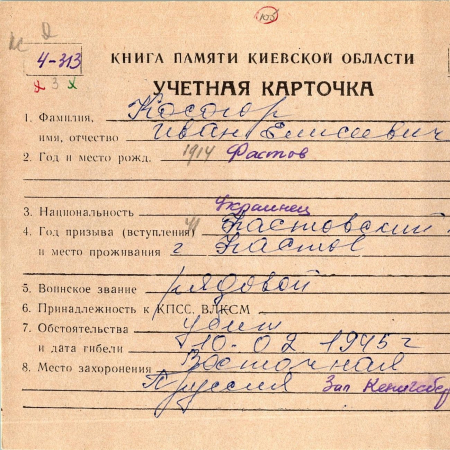 105
4-313
3
КНИГА ПАМЯТИ КИЕВСКОЙ ОБЛАСТИ
УЧЕТНАЯ КАРТОЧКА
1. Фамилия,
имя, отчество Иван Елисеевич
2. Год и место рожд. 1914 Фастов
3. Национальность Украинец
4. Год призыва (вступления) 41 Фастовский
и место проживания г Фастов
5. Воинское звание рядовой
6. Принадлежность к КПСС, ВЛКСМ
7. Обстоятельства убит
и дата гибели 10-02 1945 г
8. Место захоронения Восточная
Пруссия Зап Кенигсбер